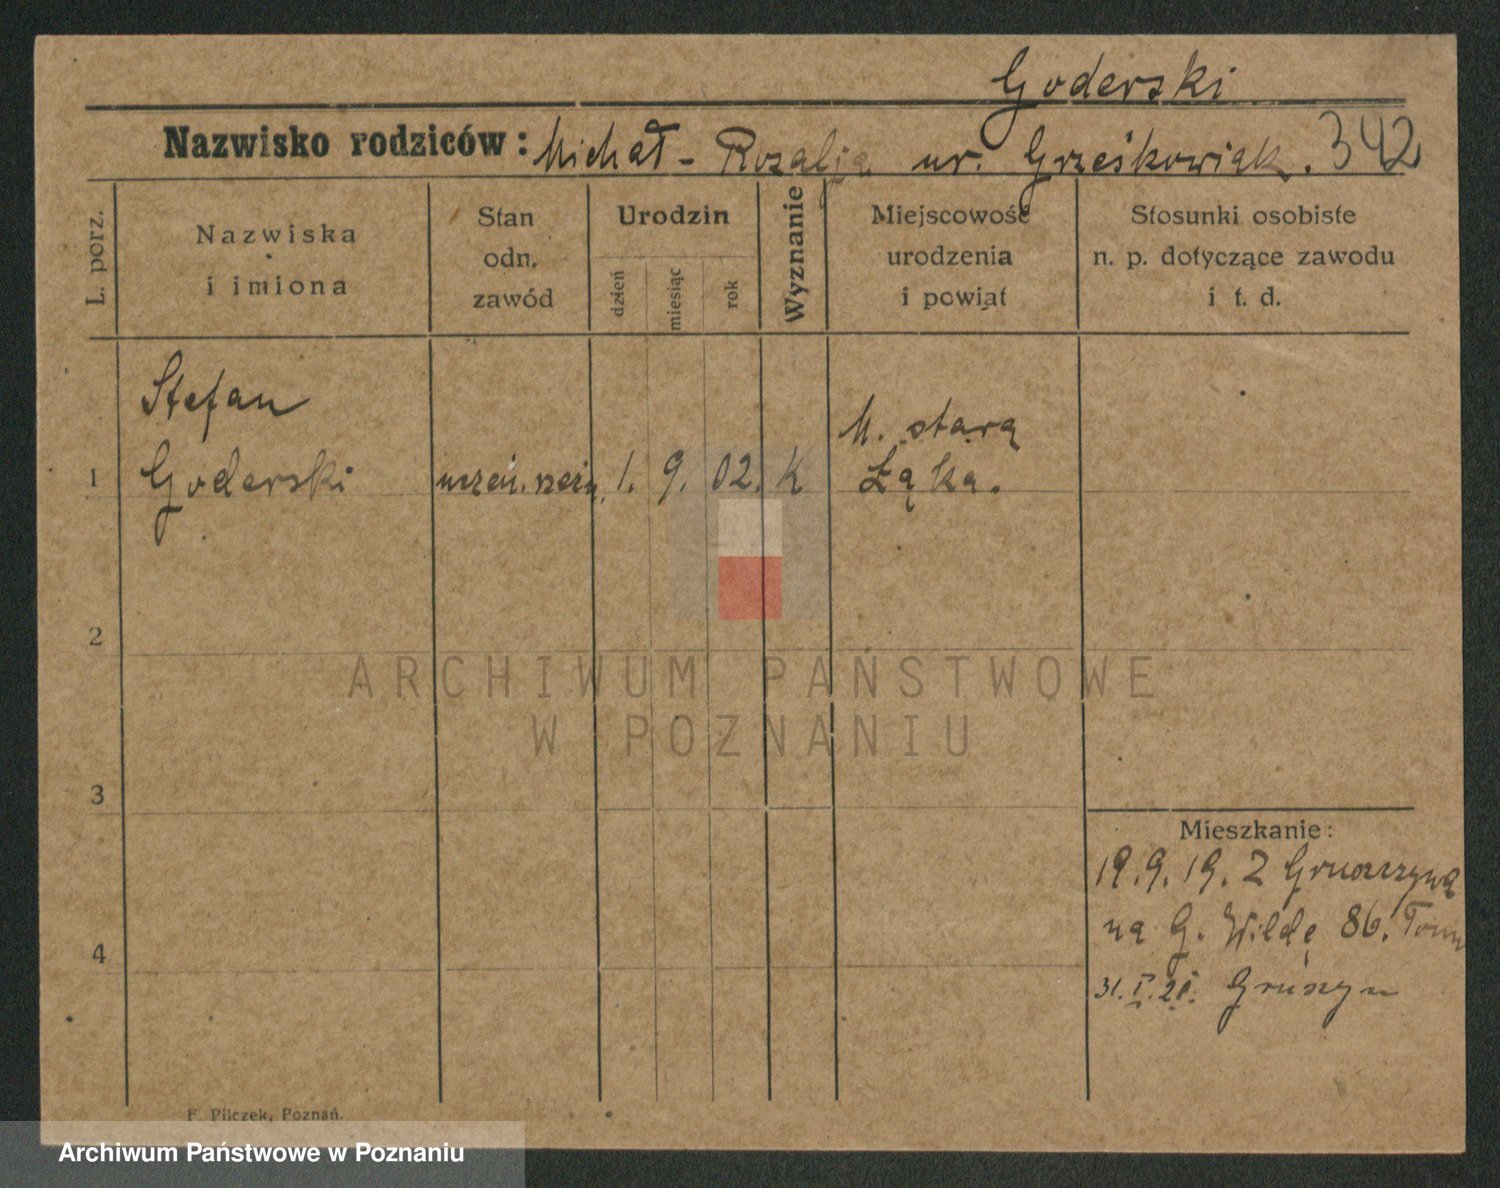 Goderski
Nazwisko rodziców: Michał - Rozalja ur. Grześkowiak. 342
L. porz.
Nazwiska
i imiona
Stan
odn.
zawód
Urodzin
dzień
miesiąc
rok
Wyznanie
Miejscowość
urodzenia
i powiat
Stosunki osobiste
n. p. dotyczące zawodu
i t. d.
Stefan
1 Goderski uczeń. 1. 9. 02. K
M. starą
Łąka.
2
3
4
Mieszkanie:
19.9.19. Z
na G. Wildę 86.
31.I.21.
F. Pilczek, Poznań.
ARCHIWUM PAŃSTWOWE
W POZNANIU
Archiwum Państwowe w Poznaniu